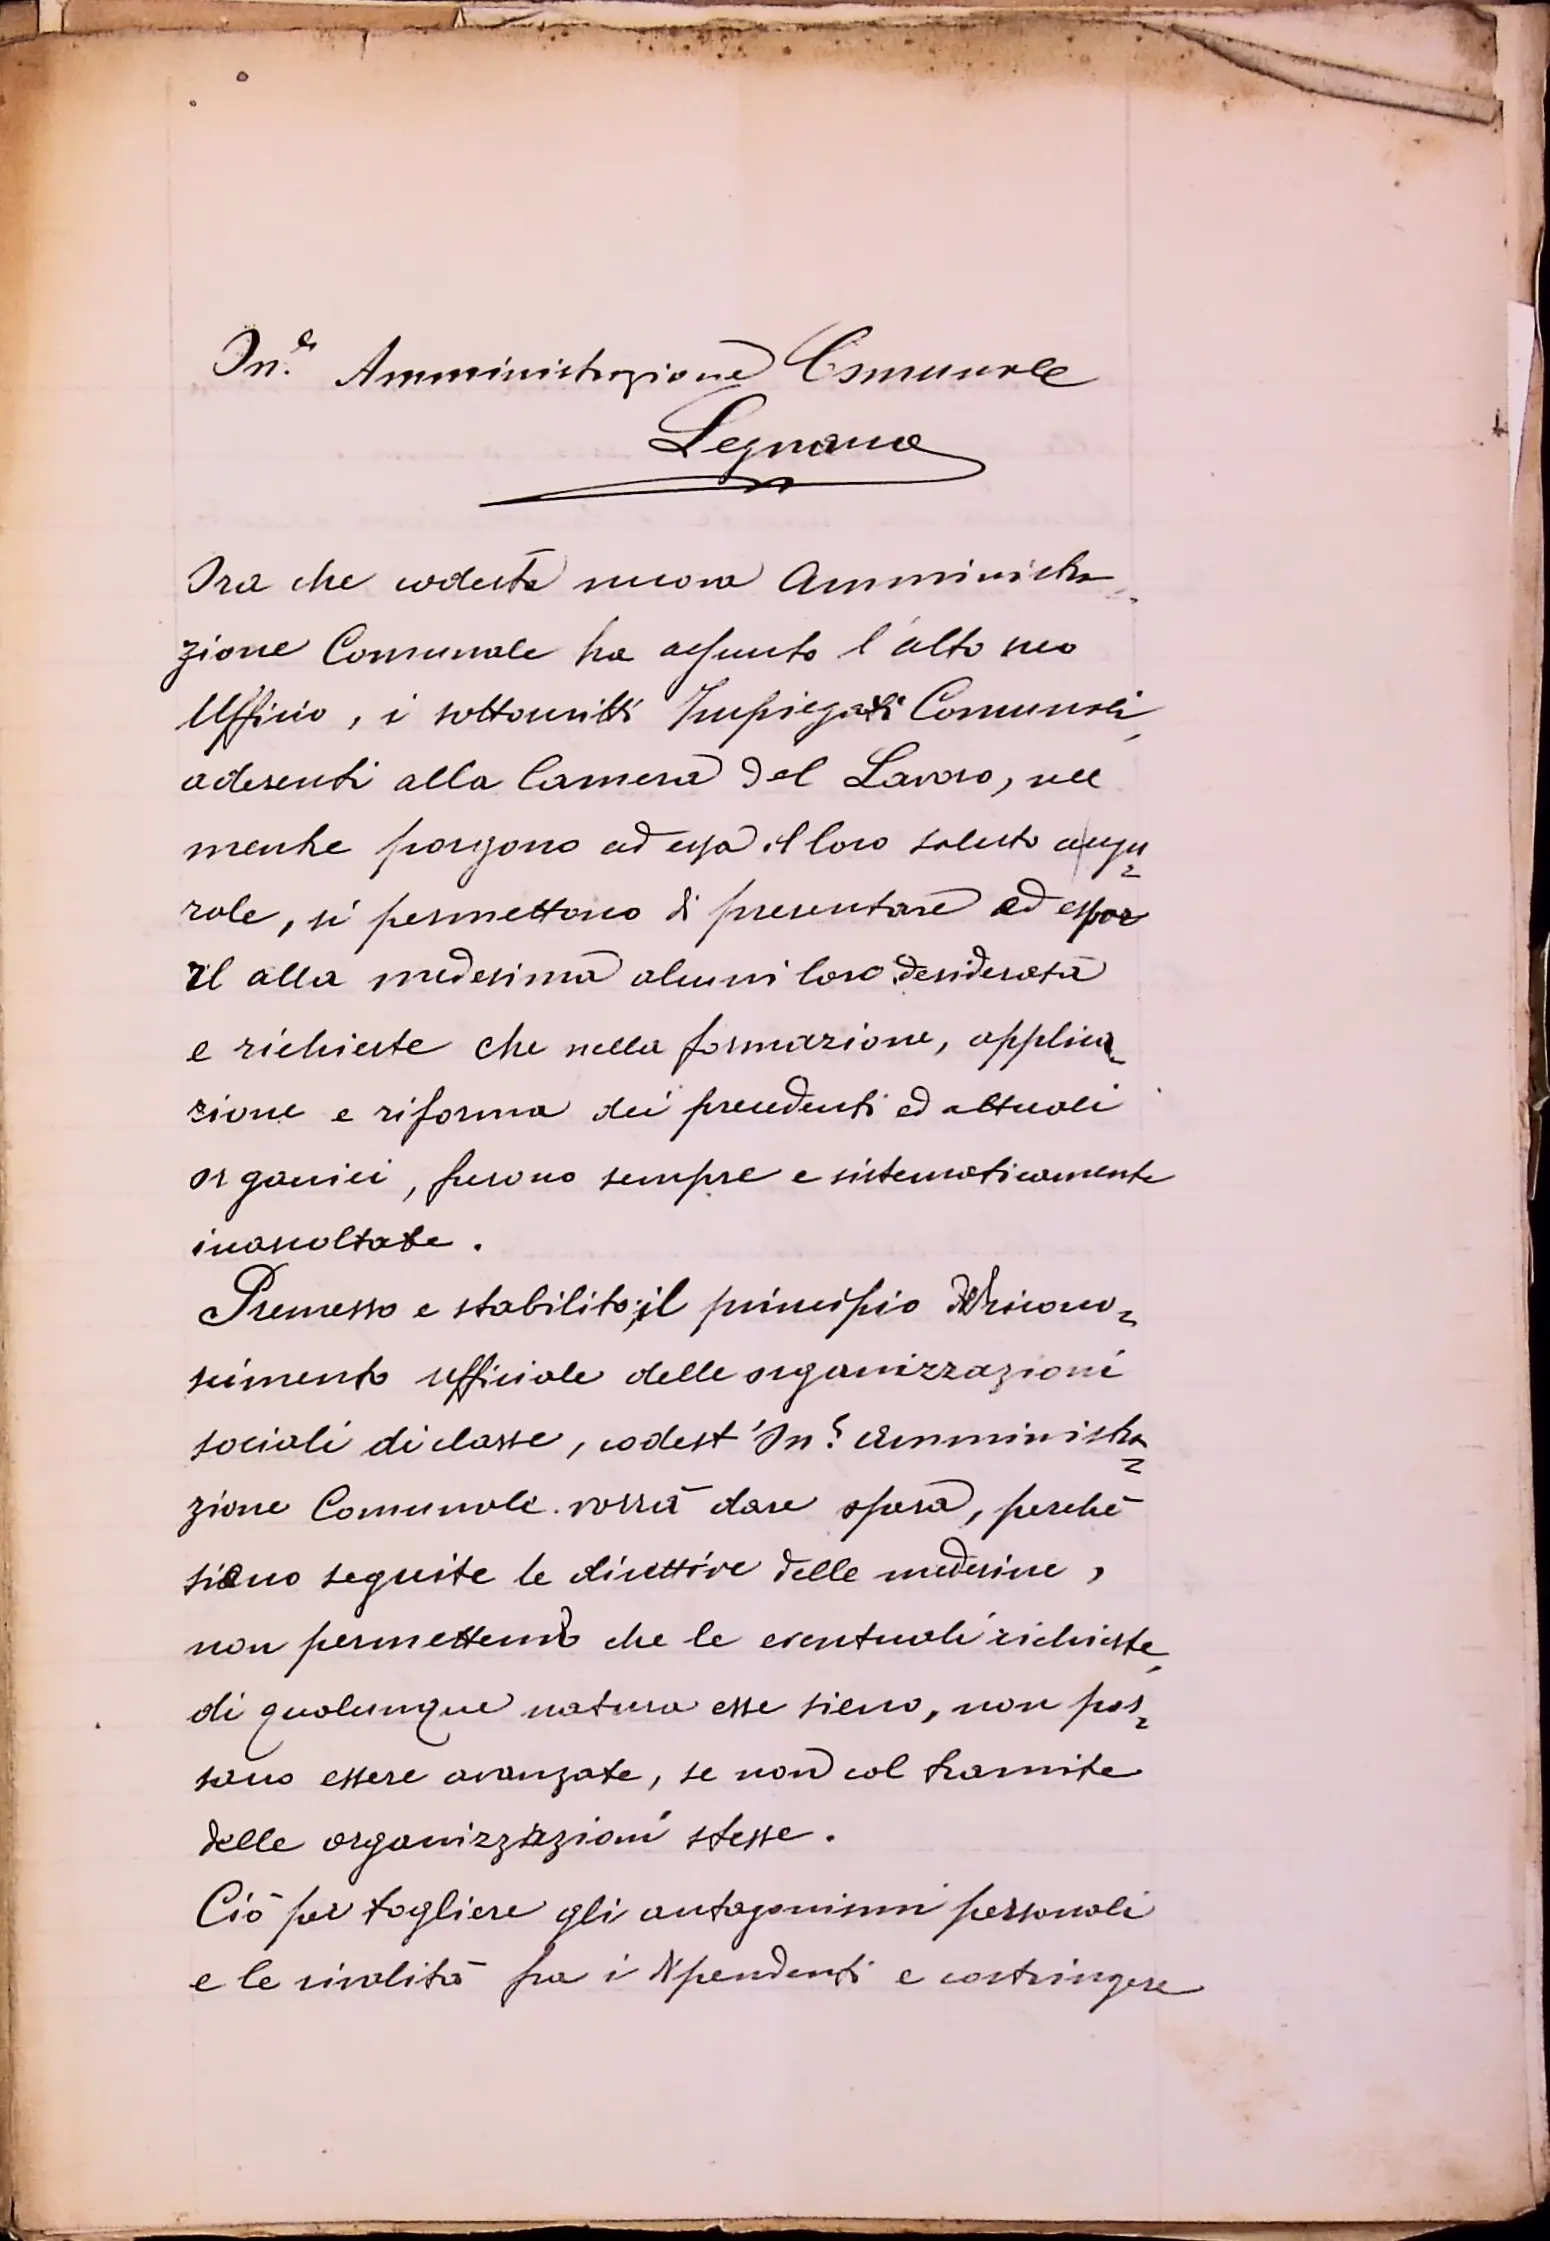 On.e Amministrazione Comunale
Legnano
Ora che codesta nuova Amministra-
zione Comunale ha assunto l'alto suo
Ufficio, i sottoscritti Impiegati Comunali,
aderenti alla Camera del Lavoro, nel
mentre porgono ad essa il loro saluto augu=
rale, si permettono di presentare ed espor
alla medesima alcuni loro desiderata
e richieste che nella formazione, applica-
zione e riforma dei precedenti ed attuali
organici, furono sempre e sistematicamente
inascoltate.
Premesso e stabilito, il principio del ricono=
scimento ufficiale delle organizzazioni
sociali di classe, codest'On. Amministra=
zione Comunale vorrà dare opera, perché
siano seguite le direttive delle medesime,
non permettendo che le eventuali richieste,
di qualunque natura esse sieno, non pos=
sano essere avanzate, se non col tramite
delle organizzazioni stesse.
Ciò per togliere gli antagonismi personali
e le rivalità fra i dipendenti e costringere